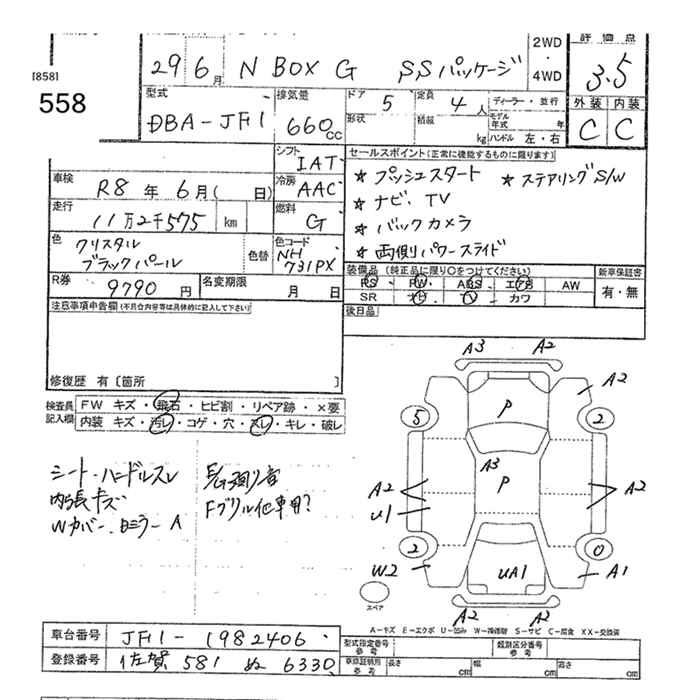 2WD
評価点
[858]
558
29 6月 N BOX G SSパッケージ
・
4WD
3.5
型式 DBA-JF1
排気量 660 CC
ドア 5
形状
定員 4 人
積載 kg
ディーラー・並行
モデル年式 年
ハンドル 左・右
外装 内装
C C
シフト IAT
冷房 AAC
燃料 G
車検 R8 年 6月( 日)
走行 11万2千575 km
色 クリスタルブラックパール
色替
色コード NH731PX
R券 9790 円
名変期限 月 日
セールスポイント(正常に機能するものに限ります)
☆ プッシュスタート ☆ ステアリングS/W
☆ ナビ、TV
☆ バックカメラ
☆ 両側パワースライド
装備品(純正品に限り○をつけてください)
新車保証書
PS PW ABS エアB AW
SR ナビ TV カワ
有・無
後日品
注意事項申告欄(不具合内容等は具体的に記入して下さい)
修復歴 有〔箇所 〕
検査員記入欄
FW キズ・飛石・ヒビ割・リペア跡・×要
内装 キズ・汚レ・コゲ・穴・スレ・キレ・破レ
シート・ハンドルスレ
内張キズ
Wカバー・ミラー A
Fグリル他車用?
A3 A2
A2
P
5 2
A3
P
A2 A2
U1
2 0
W2 UA1 A1
スペア
A2 A2
A-キズ E-エクボ U-凹み W-補修跡 S-サビ C-腐食 XX-交換済
車台番号 JF1-1982406
登録番号 佐賀 581 ぬ 6330
型式指定番号 参考
類別区分番号 参考
車庫証明用 参考
長さ cm 幅 cm 高さ cm